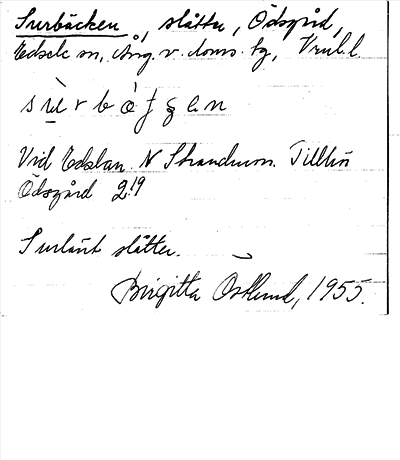 Surbäcken, slåtter, Ödsgård,
Edsele sn, Ång. v. doms. tg, Vnrl. l.
Vid Edslan. N Strandmon. Tillhör
Ödsgård 2:19
Surlänt slåtter.
Birgitta Östlund, 1955.